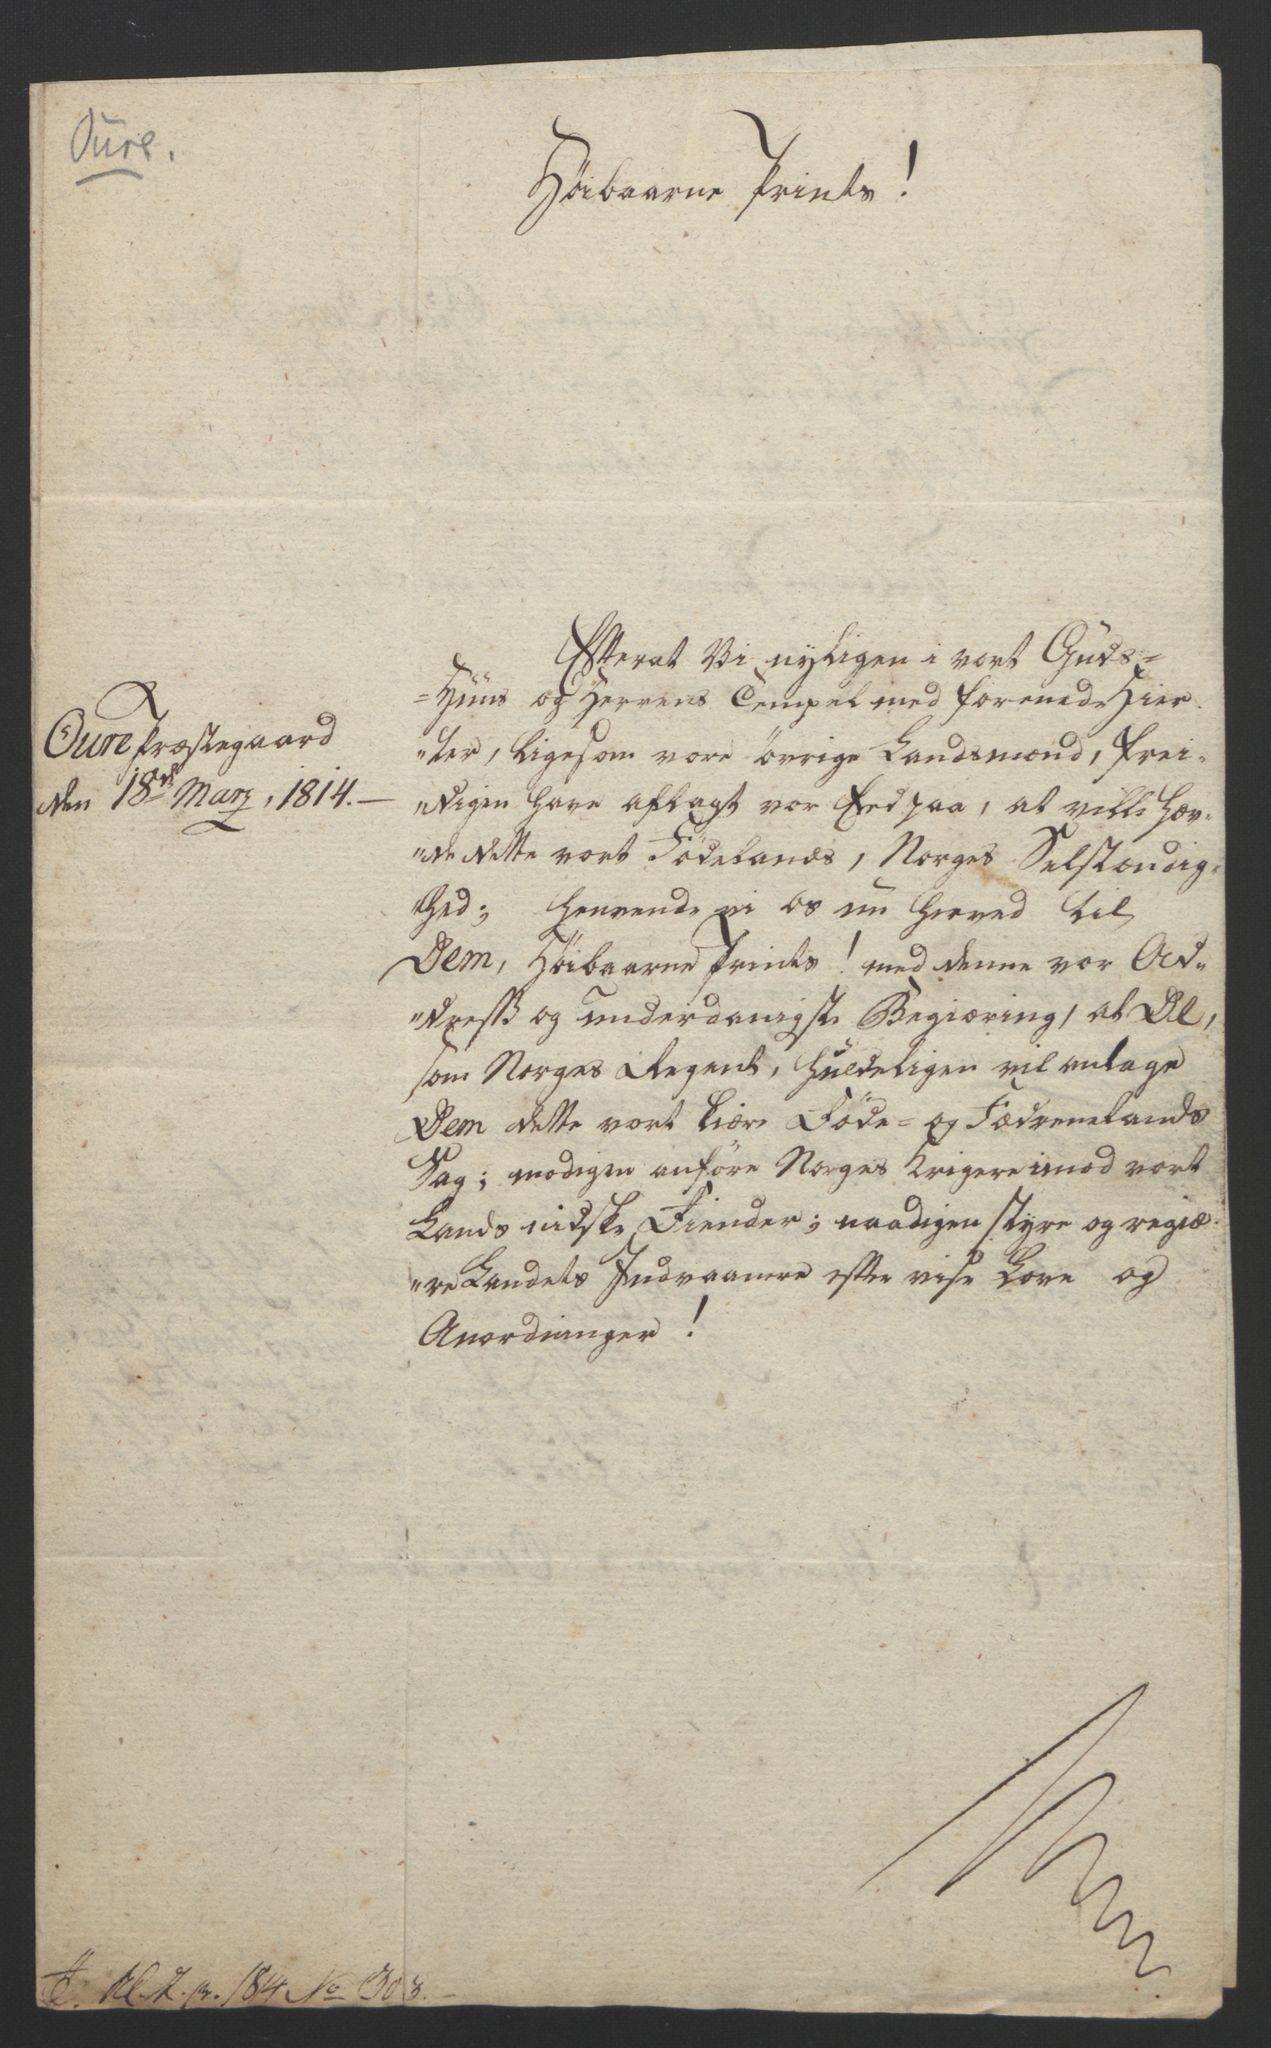 Oure.
Höibaarne Prints!
Oure Præstegaard
den 18de Marz, 1814.—
Efterat Vi nyligen i vort Guds=
=Huus og Herrens Tempel med forenede Hier-
"ter, ligesom vore övrige Landsmænd, frei-
"digen have aflagt vor Eed paa, at ville hæv-
"de dette vort Födelands, Norges Selstændig-
hed; henvende vi os nu herved til
Dem, Höibaarne Prints! med denne vor Ad-
"dresse og underdanigste Begiæring, at De,
som Norges Regent, huldeligen vil antage
Dem dette vort kiære Föde= og Fædrenelands
Sag; modigen anföre Norges Krigere imod vort
Lands nidske Fiender; naadigen styre og regiæ-
"re Landets Indvaanere efter vise Love og
Anordninger!
No 303.